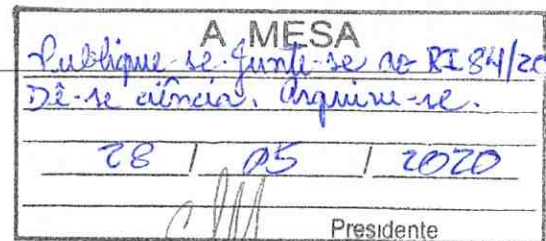 A MESA
Publique-se. Junte-se ao RI 84/20
Dê-se ciência. Arquive-se.
28 / 05 / 2020
Presidente